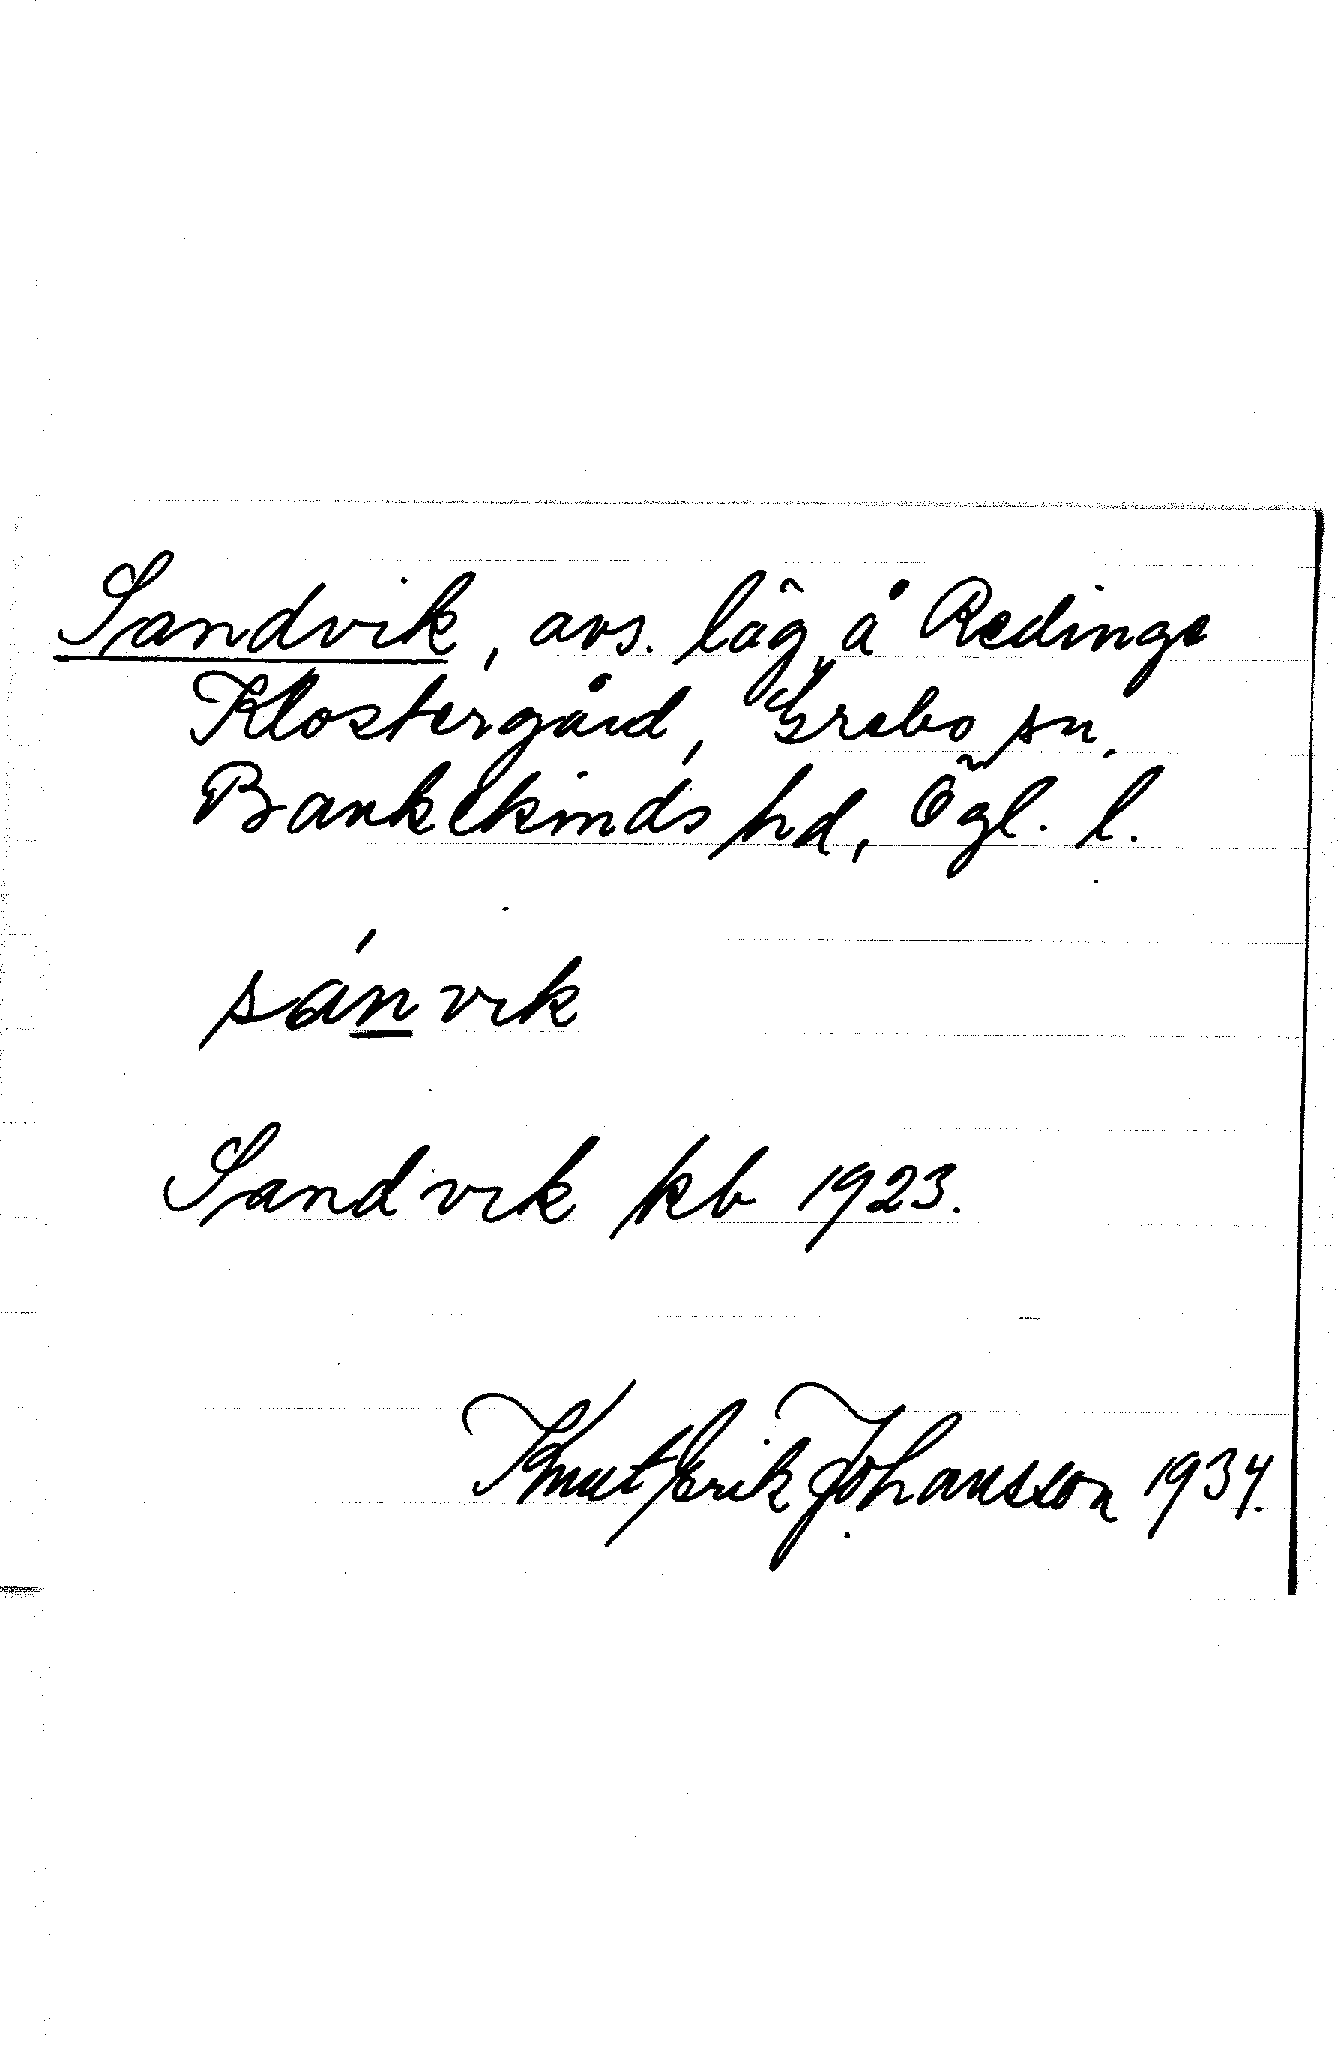 Sandvik, avs. läg. å Redinge
Klostergård, Grebo sn,
Bankekinds hd, Ögl. l.
sánvik
Sandvik kb 1923.
Knut Erik Johansson 1934.